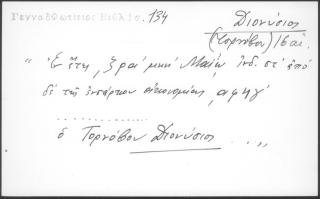 Γενναδ{ω}τισιος Βιβλιο. 134
Διονύσιος
(Τορνόβου) 16 αι.
" Ἐν ἔτει, ζρα' μηνὶ Μαΐῳ ἰνδ. στ' ἀπό
δὲ τῆς ἐνσάρκου οἰκονομίας, αφηγ'
..............
ὁ Τορνόβου Διονύσιος ..."